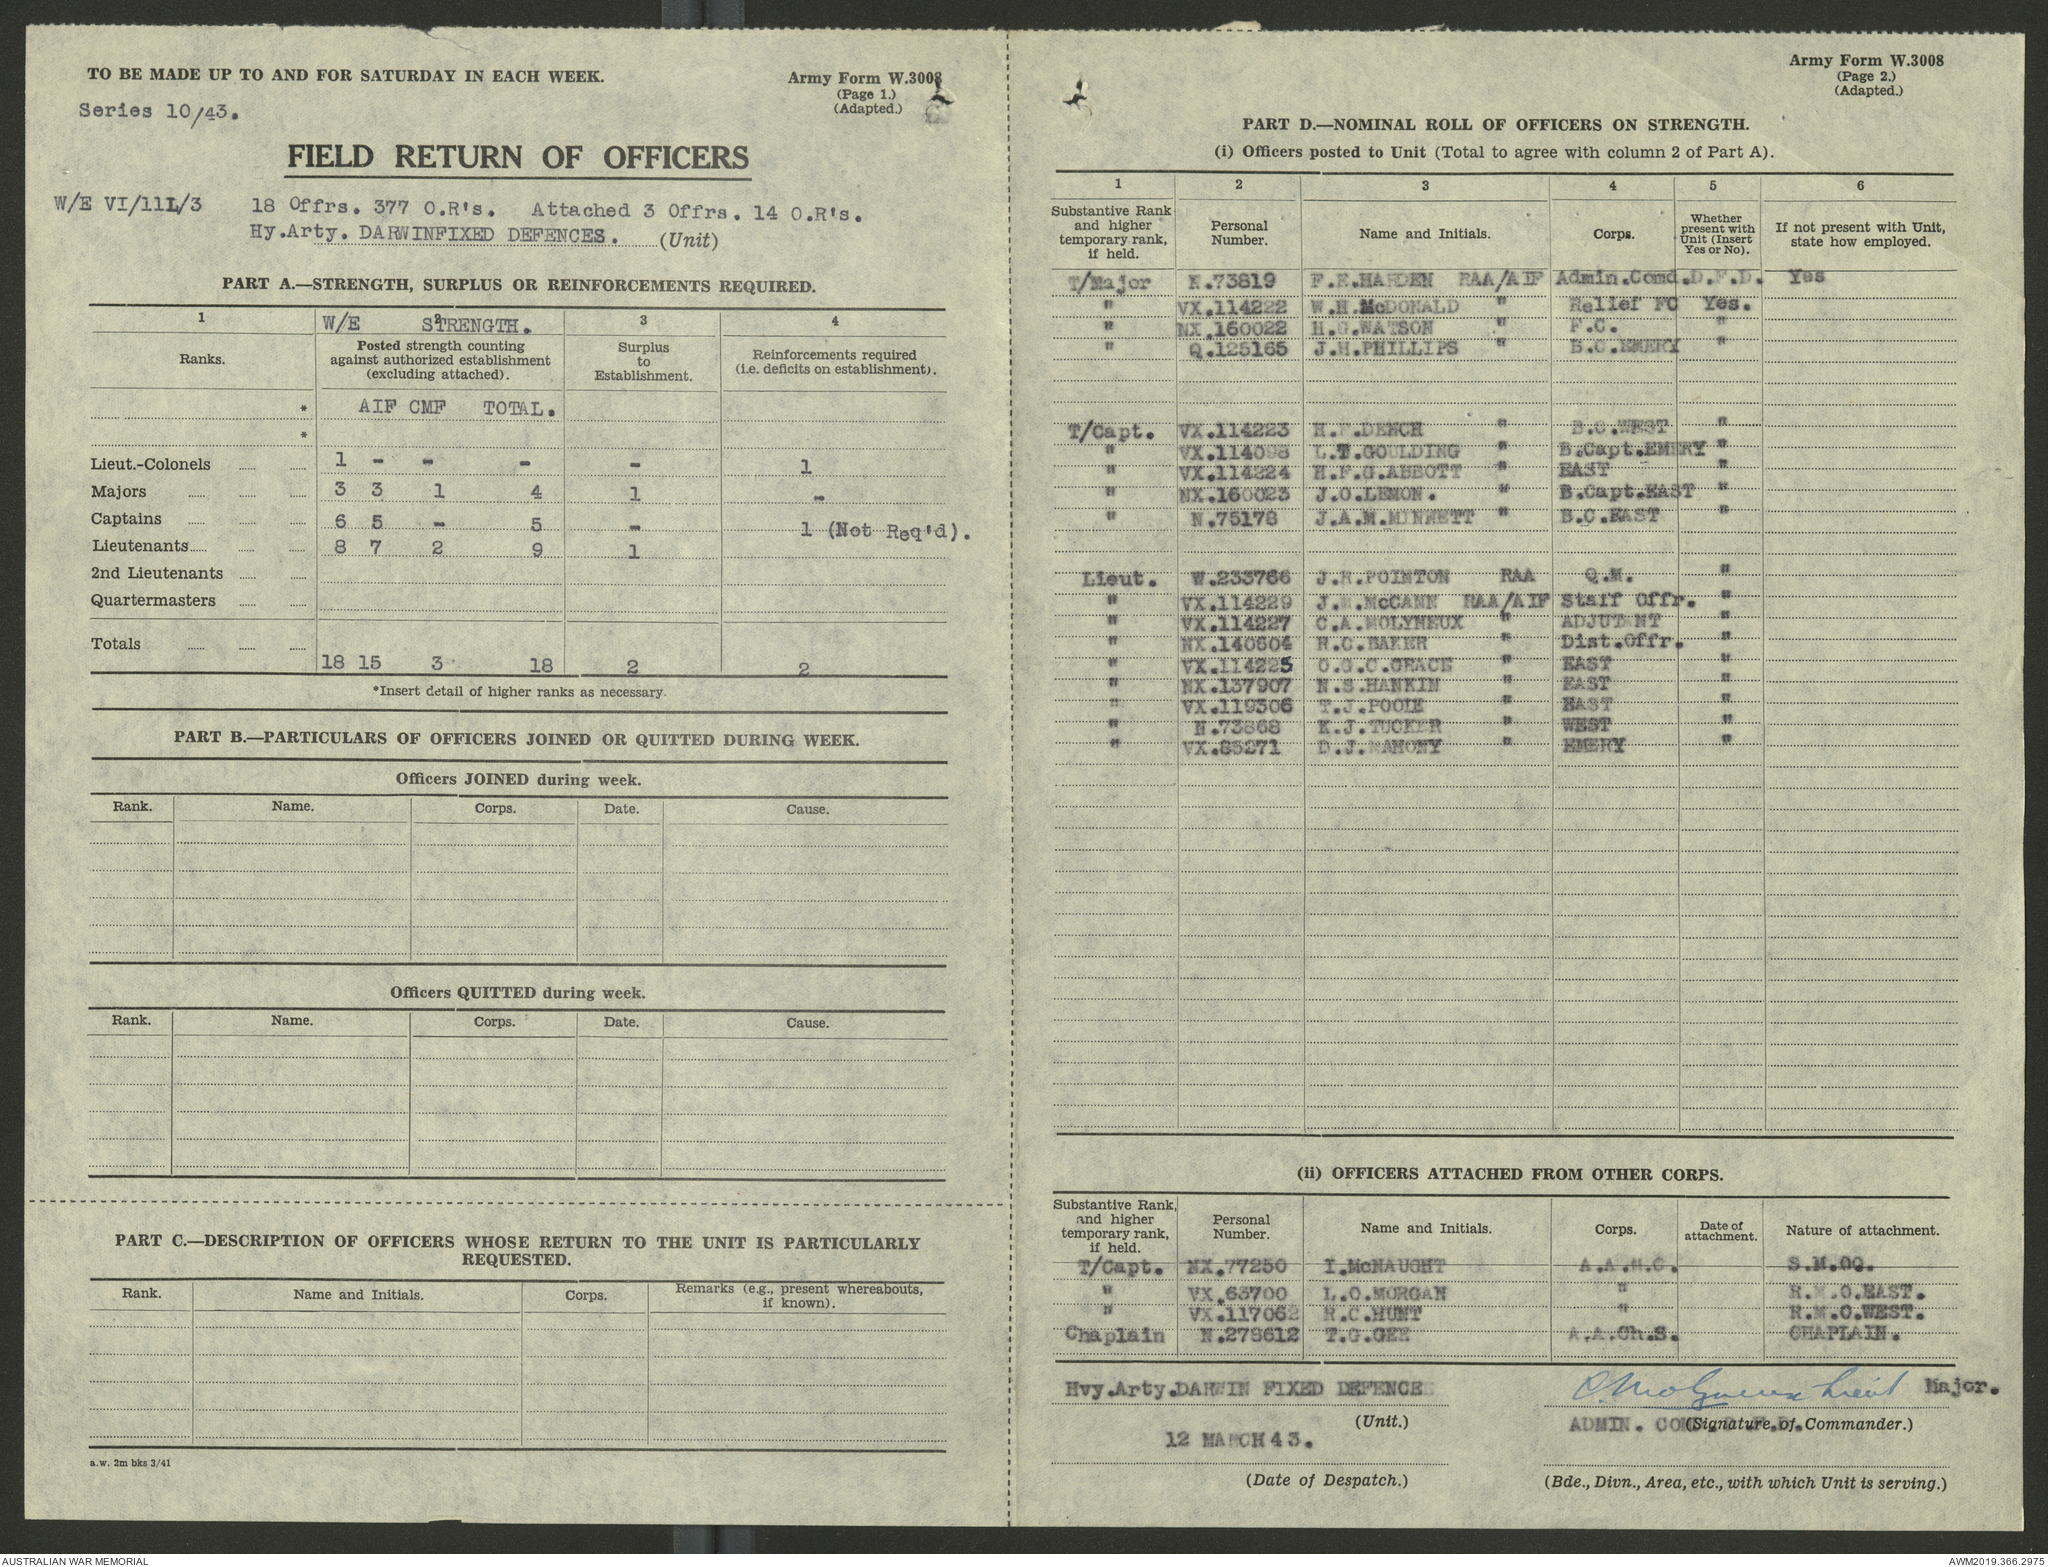 TO BE MADE UP TO AND FOR SATURDAY IN EACH WEEK.
Army Form W.3008
(Page 1.)
(Adapted.)
Series 10/43.
FIELD RETURN OF OFFICERS
W/E VI/11L/3 18 Offrs. 377 O.R's. Attached 3 Offrs. 14 O.R's.
Hy.Arty. DARWINFIXED DEFENCES. (Unit)
PART A.—STRENGTH, SURPLUS OR REINFORCEMENTS REQUIRED.
1 2 3 4
W/E STRENGTH.
Ranks.
Posted strength counting
against authorized establishment
(excluding attached).
Surplus
to
Establishment.
Reinforcements required
(i.e. deficits on establishment).
* AIF CMF TOTAL.
*
Lieut.-Colonels 1 - - - - 1
Majors 3 3 1 4 1 -
Captains 6 5 - 5 - 1 (Not Req'd).
Lieutenants 8 7 2 9 1
2nd Lieutenants
Quartermasters
Totals 18 15 3 18 2 2
*Insert detail of higher ranks as necessary.
PART B.—PARTICULARS OF OFFICERS JOINED OR QUITTED DURING WEEK.
Officers JOINED during week.
Rank. Name. Corps. Date. Cause.
Officers QUITTED during week.
Rank. Name. Corps. Date. Cause.
PART C.—DESCRIPTION OF OFFICERS WHOSE RETURN TO THE UNIT IS PARTICULARLY
REQUESTED.
Rank. Name and Initials. Corps. Remarks (e.g., present whereabouts,
if known).
a.w. 2m bks 3/41
Army Form W.3008
(Page 2.)
(Adapted.)
PART D.—NOMINAL ROLL OF OFFICERS ON STRENGTH.
(i) Officers posted to Unit (Total to agree with column 2 of Part A).
1 2 3 4 5 6
Substantive Rank
and higher
temporary rank,
if held.
Personal
Number.
Name and Initials.
Corps.
Whether
present with
Unit (Insert
Yes or No).
If not present with Unit,
state how employed.
T/Major N.73819 F.E.HARDEN RAA/AIF Admin.Comd.D.F.D. Yes
" VX.114222 W.H.McDONALD " Relief FC Yes.
" NX.160022 H.G.WATSON " F.C. "
" Q.125165 J.H.PHILLIPS " B.C.EMERY "
T/Capt. VX.114223 H.F.DENCH " B.C.WEST "
" VX.114098 L.T.GOULDING " B.Capt.EMERY "
" VX.114224 H.F.G.ABBOTT " EAST "
" NX.160023 J.O.LEMON. " B.Capt.EAST "
" N.75178 J.A.M.MINNETT " B.C.EAST "
Lieut. W.233766 J.R.POINTON RAA Q.M. "
" VX.114229 J.W.McCANN RAA/AIF Staff Offr. "
" VX.114227 C.A.MOLYNEUX " ADJUTANT "
" NX.140604 R.C.BAKER " Dist.Offr. "
" VX.114225 O.G.C.GRACE " EAST "
" NX.137907 N.S.HANKIN " EAST "
" VX.119306 T.J.POOLE " EAST "
" N.73868 K.J.TUCKER " WEST "
" VX.83271 D.J.MAHONY " EMERY "
(ii) OFFICERS ATTACHED FROM OTHER CORPS.
Substantive Rank,
and higher
temporary rank,
if held.
Personal
Number.
Name and Initials.
Corps.
Date of
attachment.
Nature of attachment.
T/Capt. NX.77250 I.McNAUGHT A.A.M.C. S.M.OO.
" VX.63700 L.O.MORGAN " R.M.O.EAST.
" VX.117062 R.C.HUNT " R.M.O.WEST.
Chaplain N.278612 T.G.GEE A.A.Ch.S. CHAPLAIN.
Hvy.Arty.DARWIN FIXED DEFENCE
(Unit.)
C Molyneux Lieut Major.
ADMIN. COMD.D.F.D.
(Signature of Commander.)
12 MARCH 43.
(Date of Despatch.)
(Bde., Divn., Area, etc., with which Unit is serving.)
AUSTRALIAN WAR MEMORIAL
AWM2019.366.2975